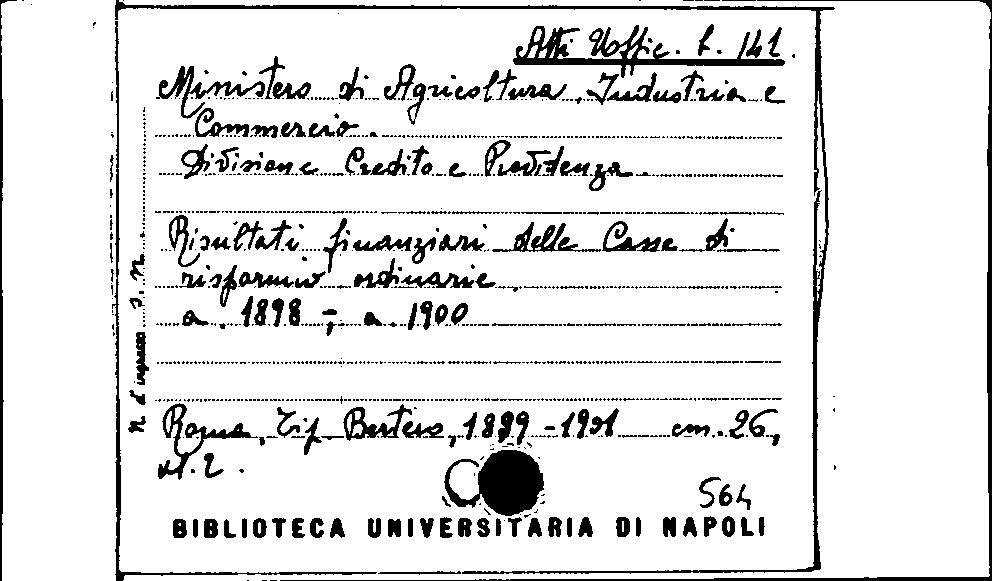 Atti Uffic. b. 141.
Ministero di Agricoltura, Industria e
Commercio.
Divisione Credito e Previdenza.
Risultati finanziari delle Casse di
risparmio ordinarie.
a. 1898 -; a. 1900
Roma, Tip. Bertero, 1899 - 1901 cm. 26,
vl. 2.
564
BIBLIOTECA UNIVERSITARIA DI NAPOLI
N. d'ingresso s. n.